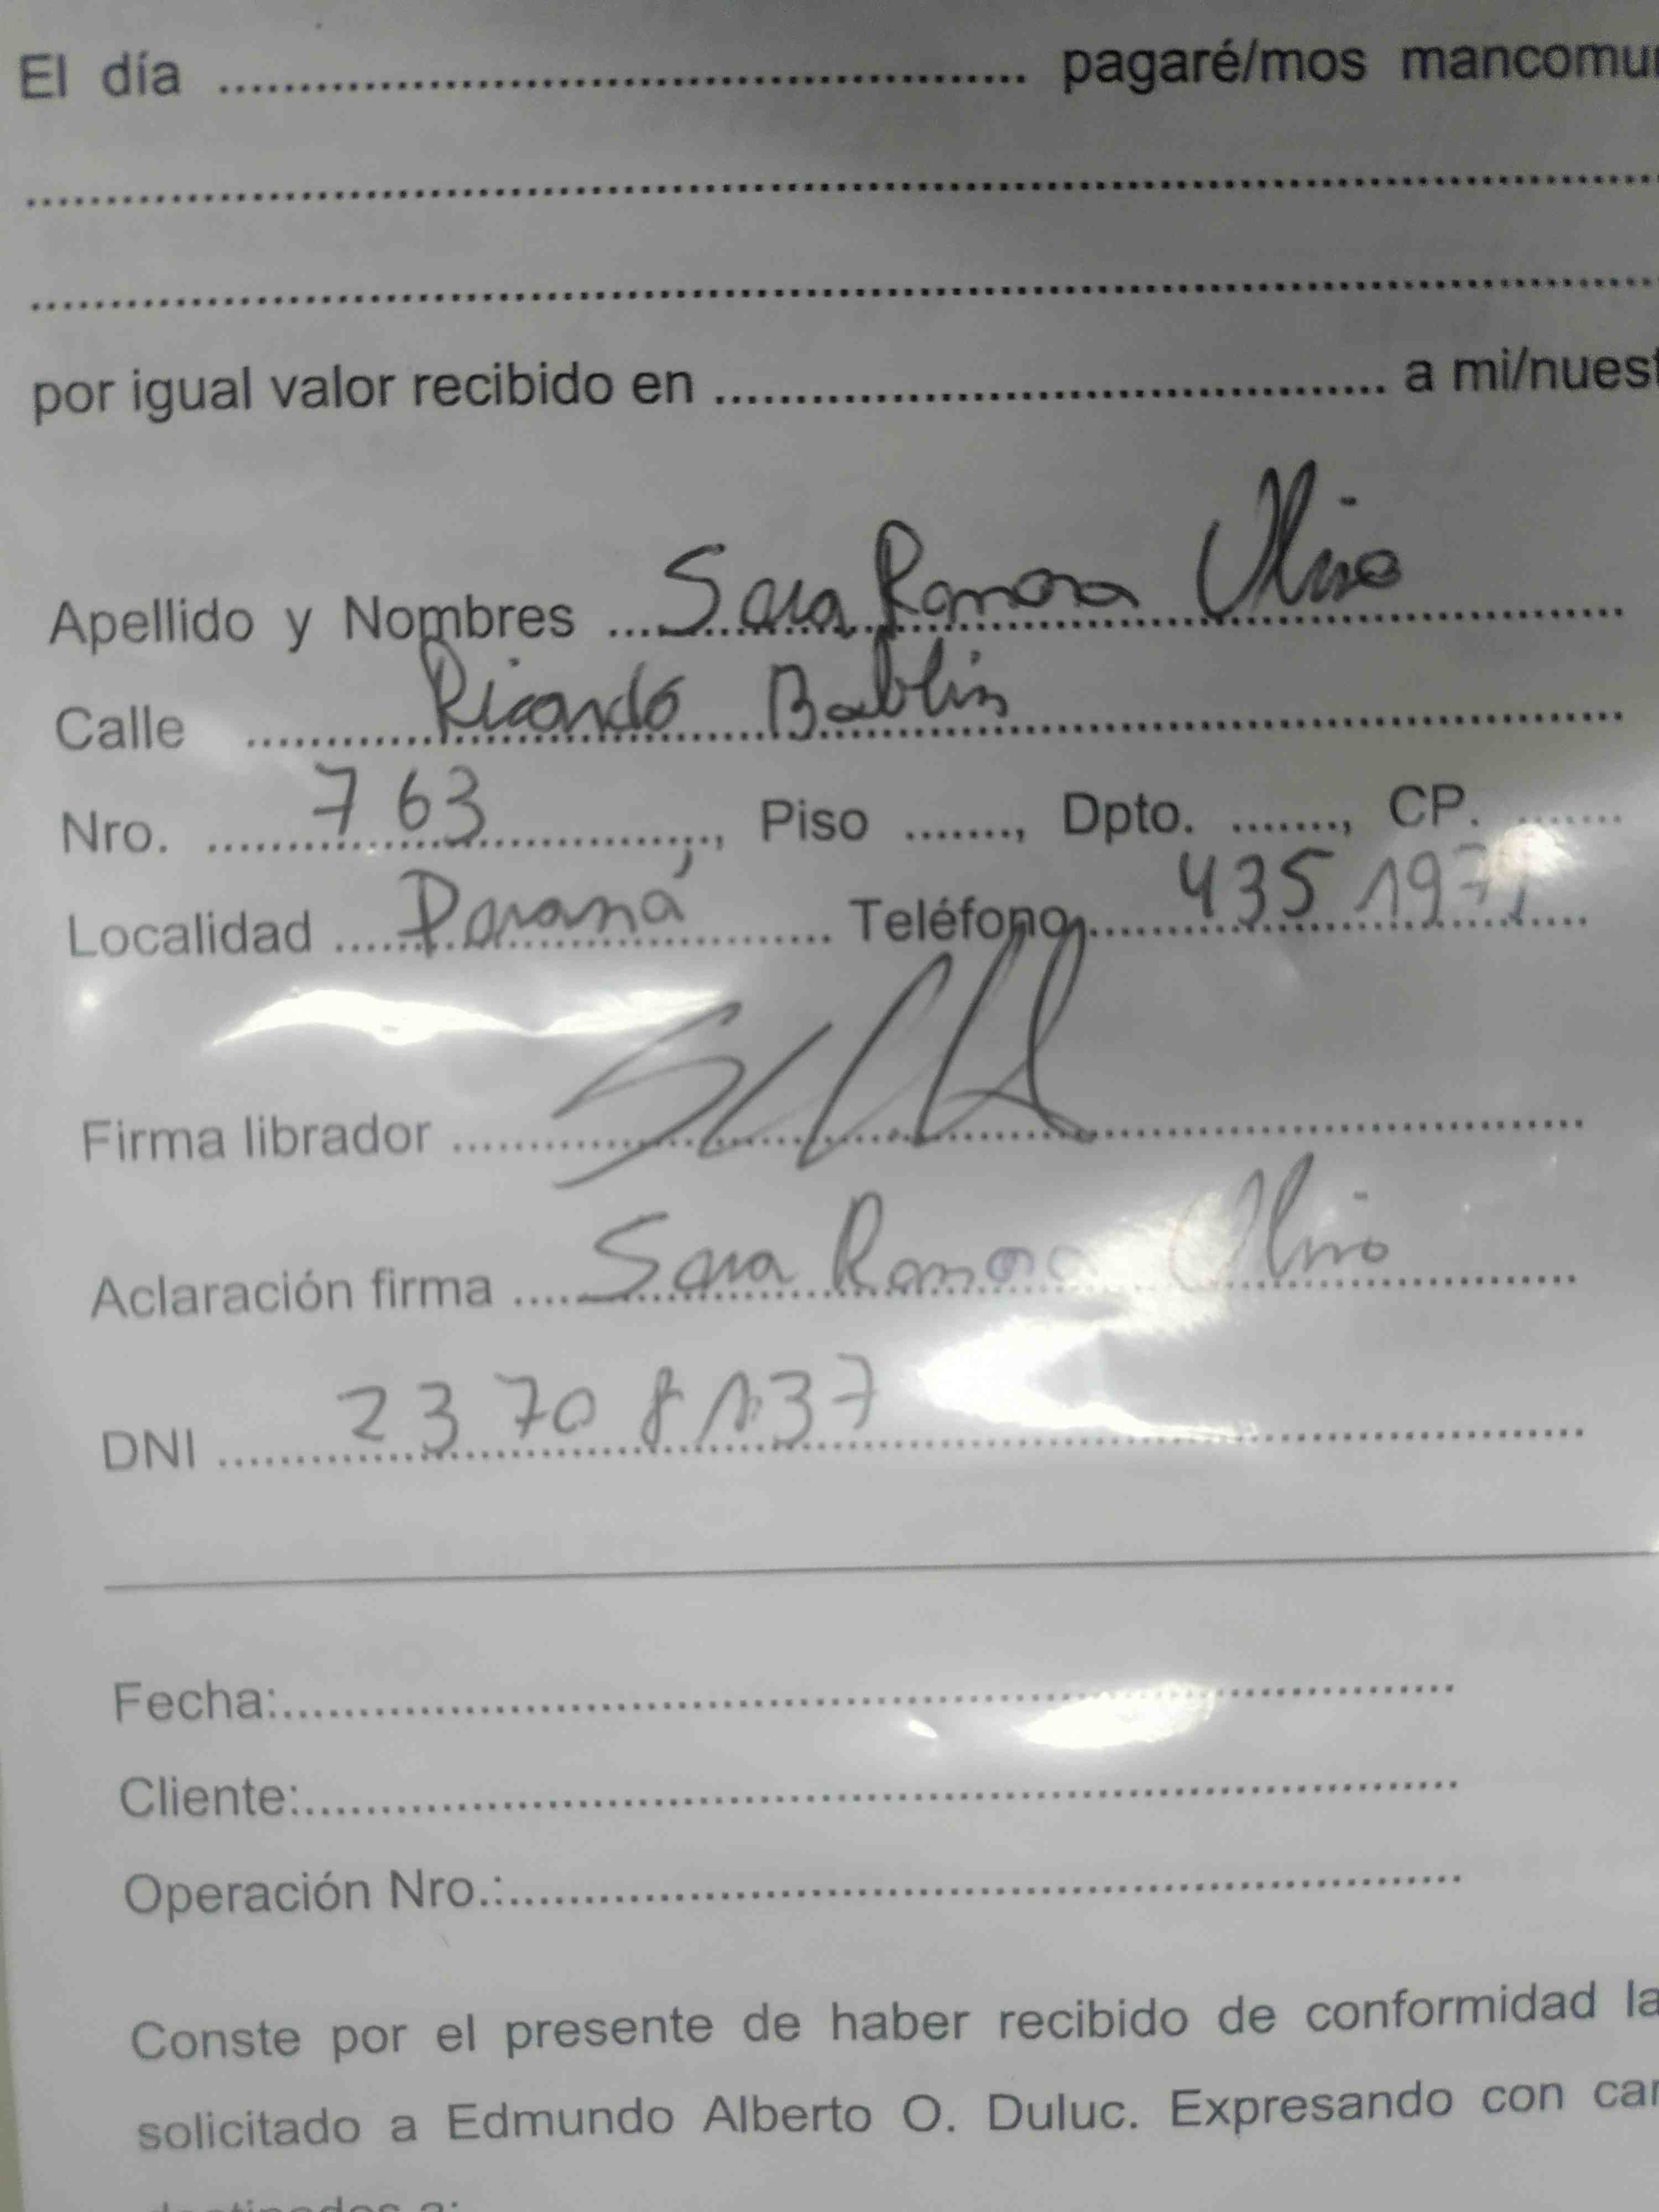 El día ........................................ pagaré/mos mancomu
................................................................................
................................................................................
por igual valor recibido en ........................................ a mi/nuest
Apellido y Nombres ... Sara Ramona Olivo
Calle ... Ricardo
Nro. ... 763 ..., Piso ......., Dpto. ......., CP. .......
Localidad ... Paraná ... Teléfono ... 435 197
Firma librador ........................................
Aclaración firma ... Sara Ramona Olivo
DNI ... 23 70 8 137
Fecha:........................................
Cliente:........................................
Operación Nro.:........................................
Conste por el presente de haber recibido de conformidad la
solicitado a Edmundo Alberto O. Duluc. Expresando con car
destinados a: